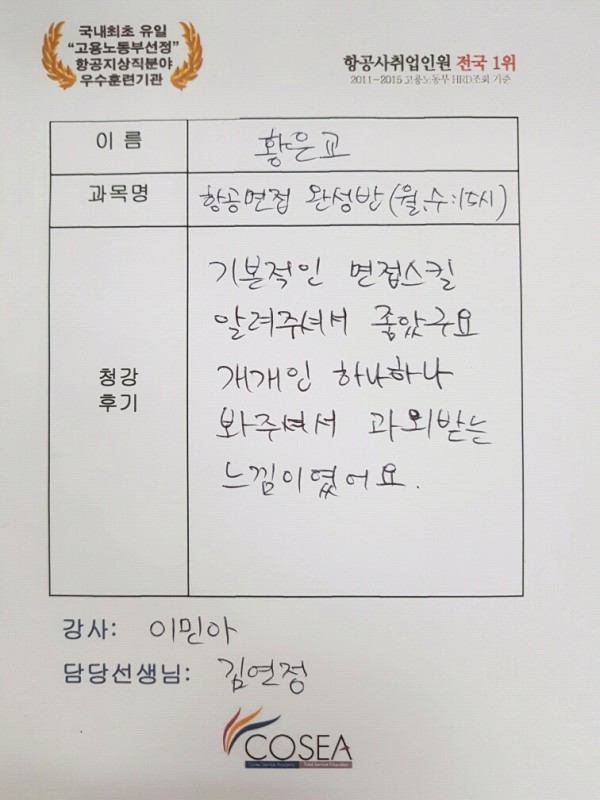 국내최초 유일
"고용노동부선정"
항공지상직분야
우수훈련기관
항공사취업인원 전국 1위
2011~2015 고용노동부 HRD조회 기준
이 름 황은교
과목명 항공면접 완성반(월,수:15시)
청강
후기
기본적인 면접스킬
알려주셔서 좋았구요
개개인 하나하나
봐주셔서 과외받는
느낌이였어요.
강사: 이민아
담당선생님: 김연정
COSEA